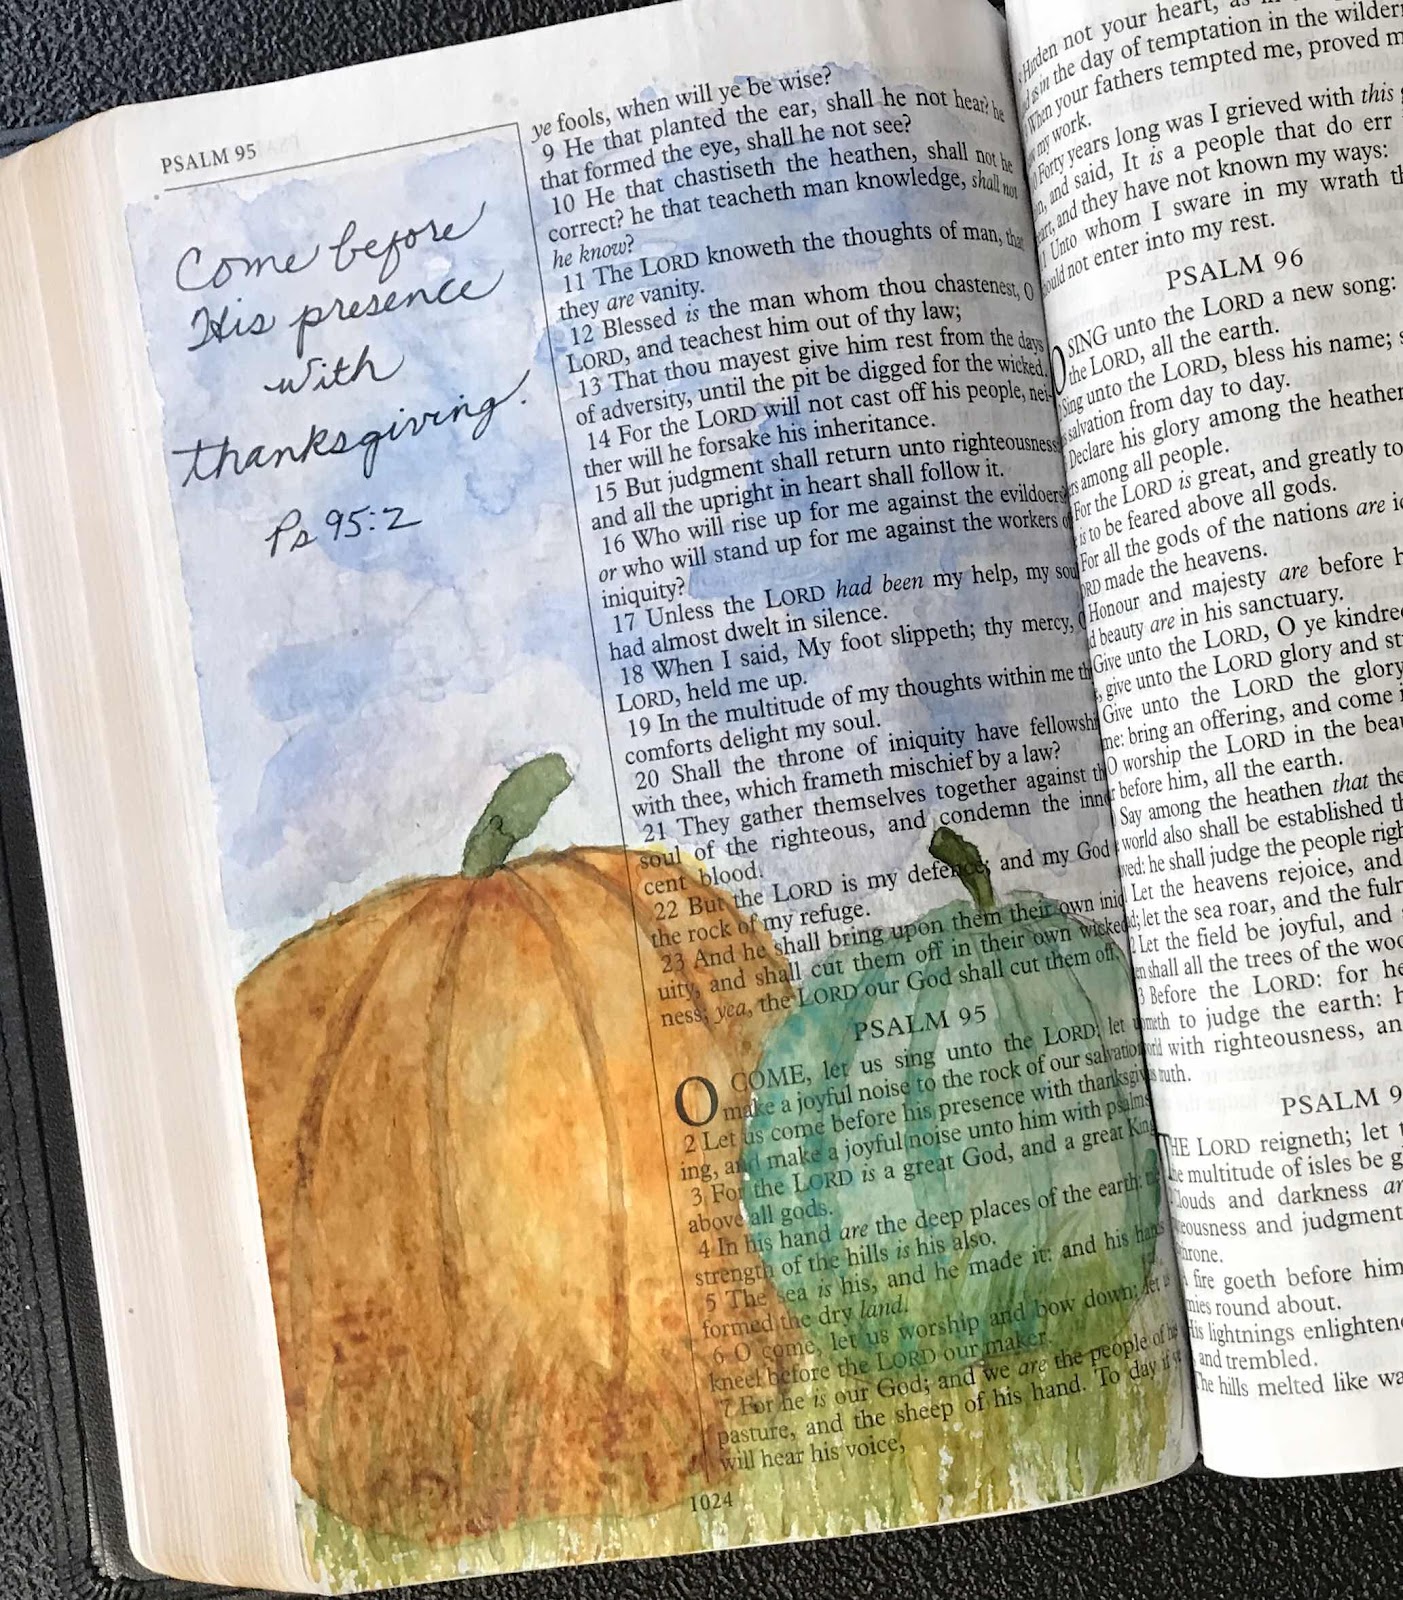 PSALM 95
Come before
His presence
with
thanksgiving!
Ps 95:2
ye fools, when will ye be wise?
9 He that planted the ear, shall he not hear? he
that formed the eye, shall he not see?
10 He that chastiseth the heathen, shall not he
correct? he that teacheth man knowledge, shall not
he know?
11 The LORD knoweth the thoughts of man, that
they are vanity.
12 Blessed is the man whom thou chastenest, O
LORD, and teachest him out of thy law;
13 That thou mayest give him rest from the days
of adversity, until the pit be digged for the wicked.
14 For the LORD will not cast off his people, nei-
ther will he forsake his inheritance.
15 But judgment shall return unto righteousness
and all the upright in heart shall follow it.
16 Who will rise up for me against the evildoers
or who will stand up for me against the workers of
iniquity?
17 Unless the LORD had been my help, my soul
had almost dwelt in silence.
18 When I said, My foot slippeth; thy mercy, O
LORD, held me up.
19 In the multitude of my thoughts within me th
comforts delight my soul.
20 Shall the throne of iniquity have fellowshi
with thee, which frameth mischief by a law?
21 They gather themselves together against th
soul of the righteous, and condemn the inno
cent blood.
22 But the LORD is my defence; and my God
the rock of my refuge.
23 And he shall bring upon them their own iniq
uity, and shall cut them off in their own wicked
ness; yea, the LORD our God shall cut them off.
PSALM 95
O COME, let us sing unto the LORD: let u
make a joyful noise to the rock of our salvation
2 Let us come before his presence with thanksgiv
ing, and make a joyful noise unto him with psalms
3 For the LORD is a great God, and a great King
above all gods.
4 In his hand are the deep places of the earth: the
strength of the hills is his also.
5 The sea is his, and he made it: and his hands
formed the dry land.
6 O come, let us worship and bow down: let u
kneel before the LORD our maker.
7 For he is our God; and we are the people of his
pasture, and the sheep of his hand. To day if ye
will hear his voice,
1024
Harden not your heart, as in
as in the day of temptation in the wildern
When your fathers tempted me, proved m
my work.
Forty years long was I grieved with this g
n, and said, It is a people that do err
eart, and they have not known my ways:
Unto whom I sware in my wrath th
ould not enter into my rest.
PSALM 96
O SING unto the LORD a new song:
the LORD, all the earth.
Sing unto the LORD, bless his name; s
salvation from day to day.
Declare his glory among the heathen
rs among all people.
For the LORD is great, and greatly to
is to be feared above all gods.
For all the gods of the nations are id
ORD made the heavens.
Honour and majesty are before h
d beauty are in his sanctuary.
Give unto the LORD, O ye kindred
, give unto the LORD glory and st
Give unto the LORD the glory
me: bring an offering, and come i
O worship the LORD in the beau
r before him, all the earth.
Say among the heathen that the
world also shall be established th
ved: he shall judge the people righ
Let the heavens rejoice, and
d; let the sea roar, and the fuln
2 Let the field be joyful, and
en shall all the trees of the woo
3 Before the LORD: for he
ometh to judge the earth: h
orld with righteousness, an
is truth.
PSALM 9
THE LORD reigneth; let
he multitude of isles be g
Clouds and darkness ar
teousness and judgment
throne.
A fire goeth before him
mies round about.
His lightnings enlightene
and trembled.
The hills melted like wa